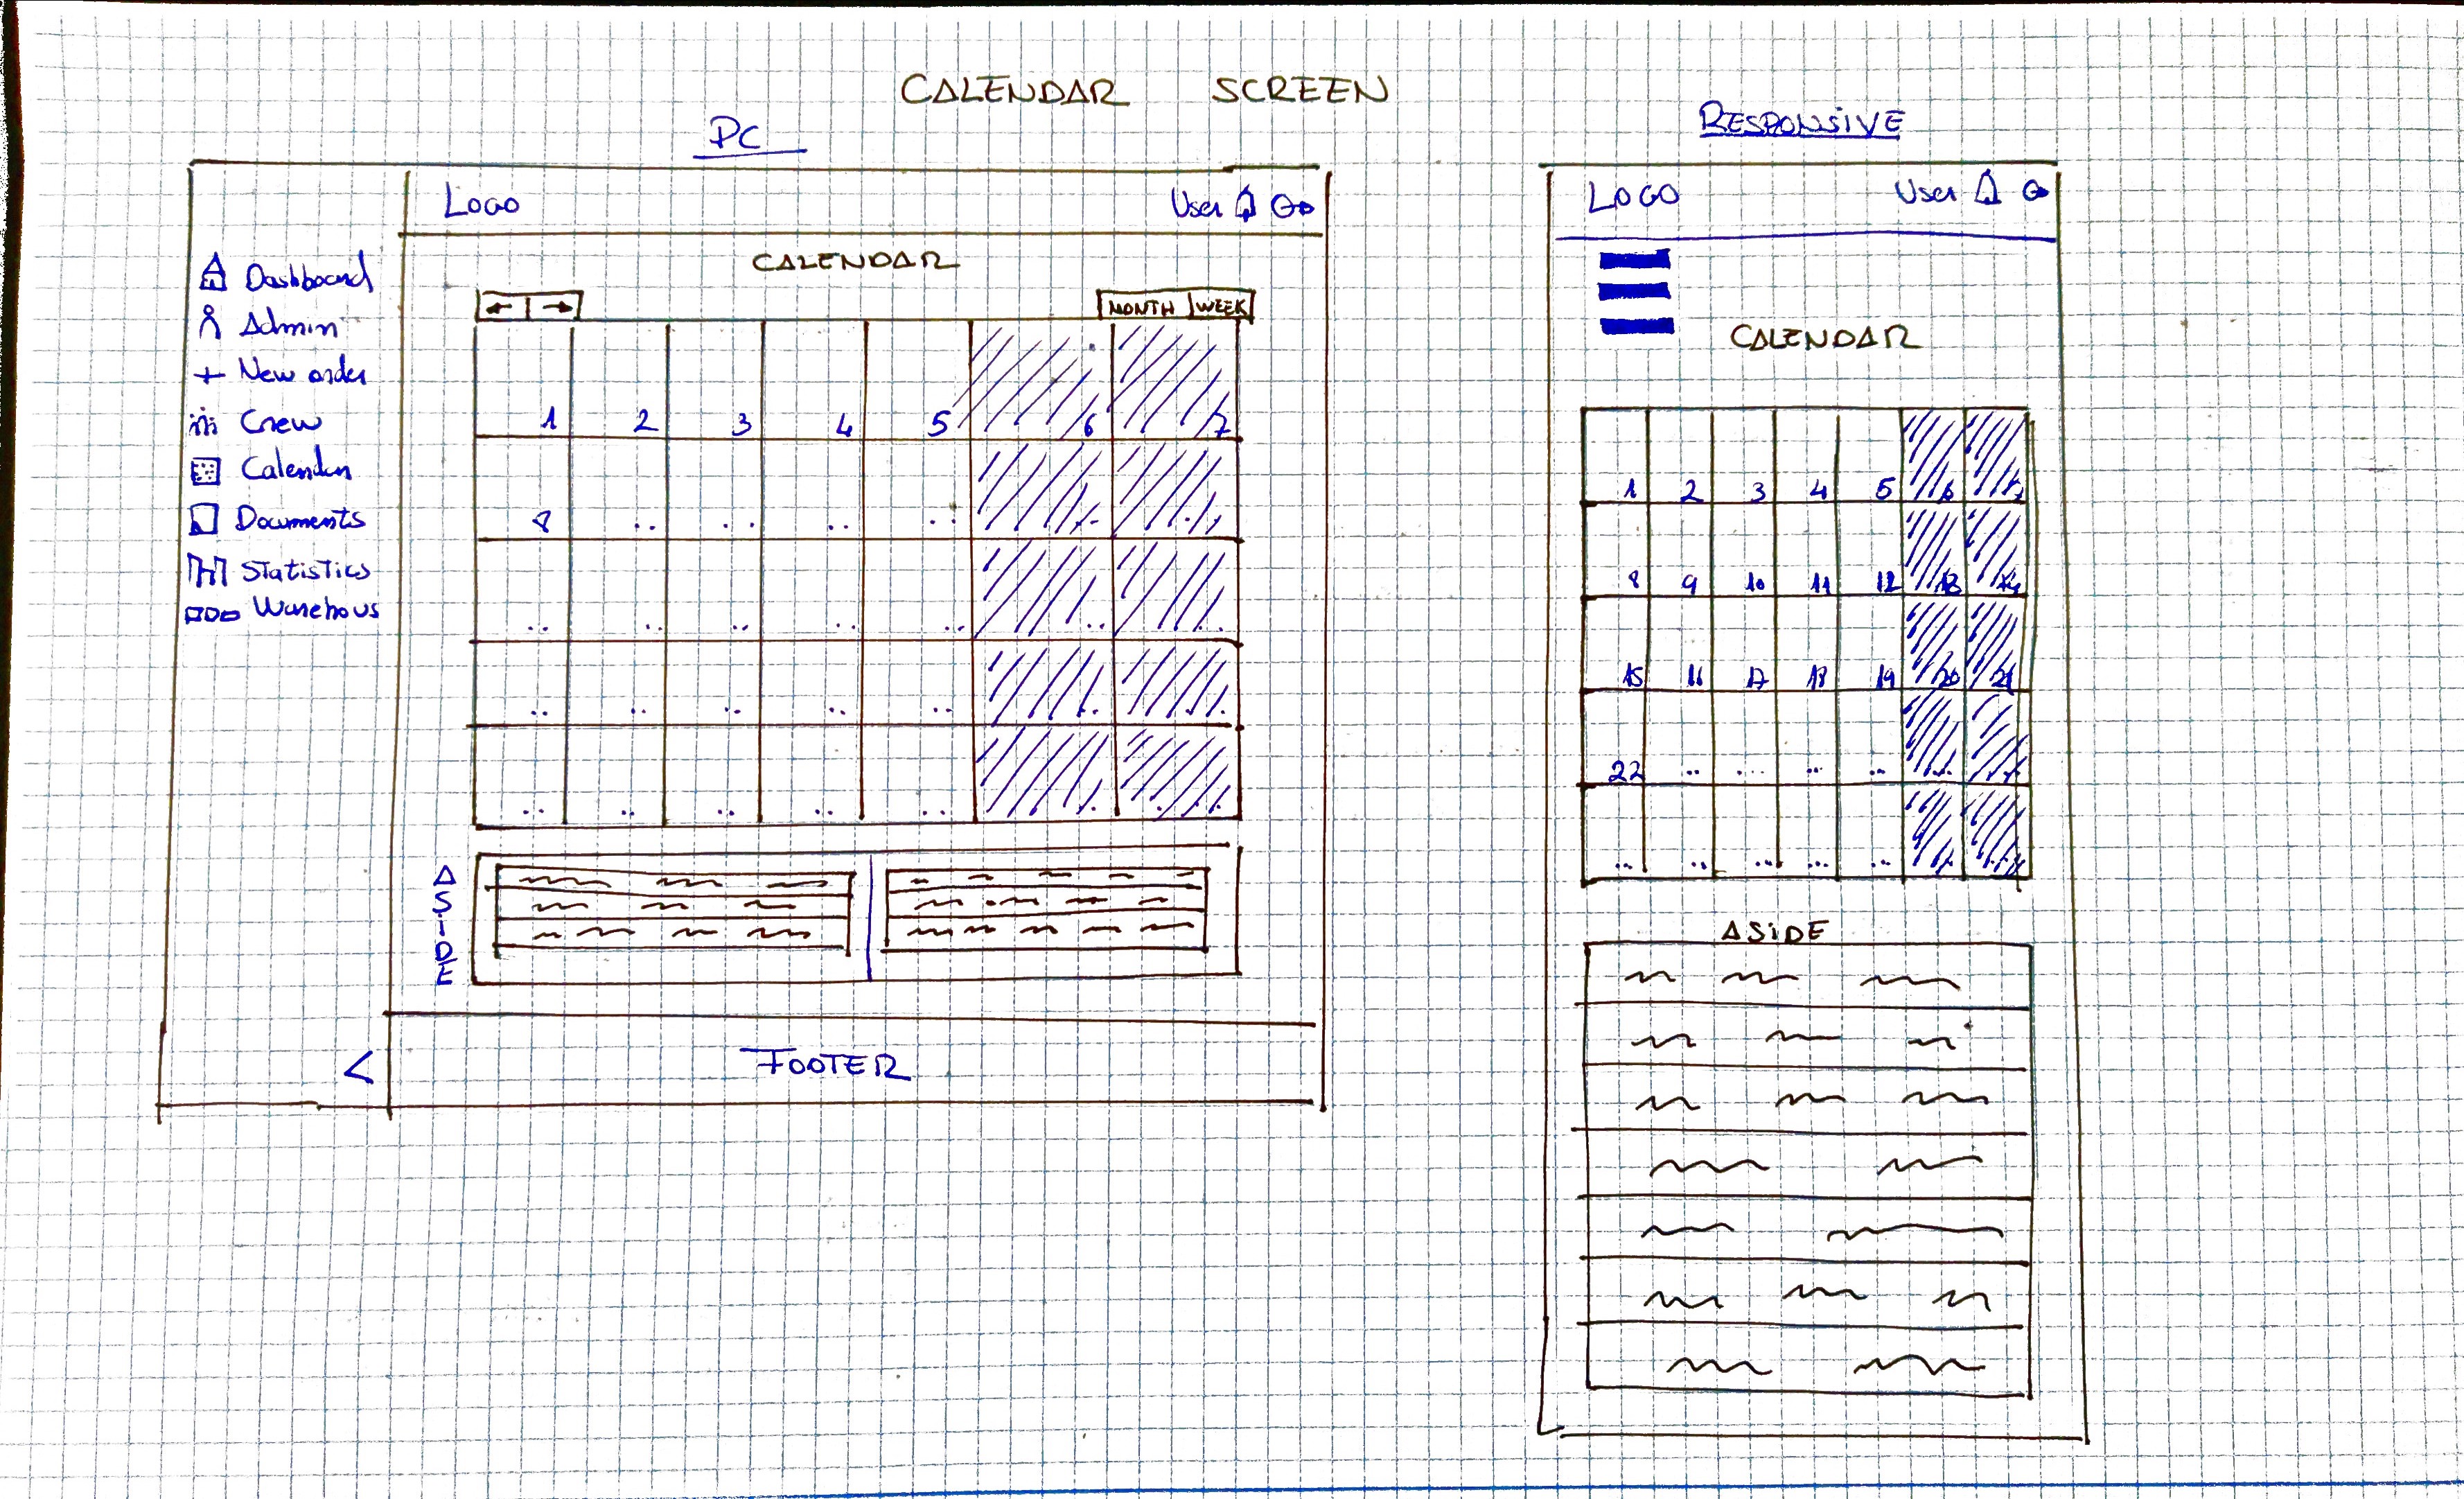 CALENDAR SCREEN
PC
Logo
User
Dashboard
Admin
+ New order
Crew
Calendar
Documents
Statistics
Warehous
<
CALENDAR
← →
MONTH WEEK
1 2 3 4 5 6 7
8 .. .. .. .. .. ..
.. .. .. .. .. .. ..
.. .. .. .. .. .. ..
.. .. .. .. ... .. ..
ASIDE
FOOTER
RESPONSIVE
LOGO
User
CALENDAR
1 2 3 4 5 6 7
8 9 10 11 12 13 14
15 16 17 18 19 20 21
22 .. ... .. .. .. ..
.. .. ... ... .. .. ..
ASIDE